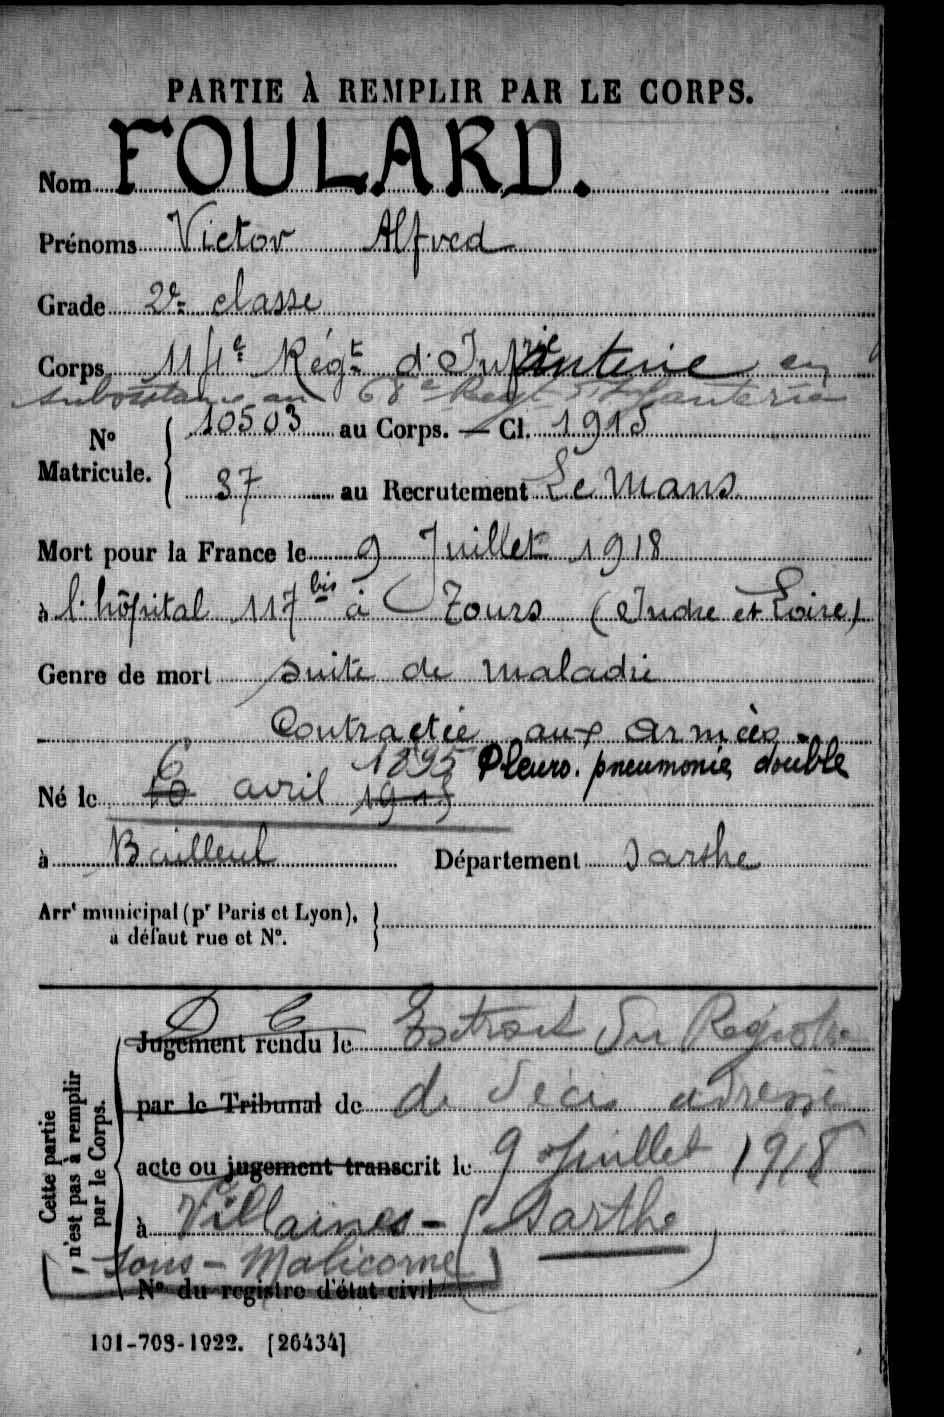 PARTIE À REMPLIR PAR LE CORPS.
Nom FOULARD.
Prénoms Victor Alfred
Grade 2e classe
Corps 114e Régt d'Infanterie en
subsistance au 68e Regt d'Infanterie
No Matricule. { 10503 au Corps. — Cl. 1915
37 au Recrutement Le Mans
Mort pour la France le 9 Juillet 1918
à l'hôpital 117 bis à Tours (Indre et Loire)
Genre de mort suite de maladie
Contractée aux armées.
Pleuro. pneumonie double
Né le 6 avril 1895
à Bailleul Département Sarthe
Arrt municipal (pr Paris et Lyon), à défaut rue et No.
Cette partie n'est pas à remplir par le Corps.
D C
Jugement rendu le Extrait du Registre
par le Tribunal de de décès adressé
acte ou jugement transcrit le 9 Juillet 1918
à Villaines - (Sarthe)
[sous - Malicorne]
No du registre d'état civil
101-708-1922. [26434]